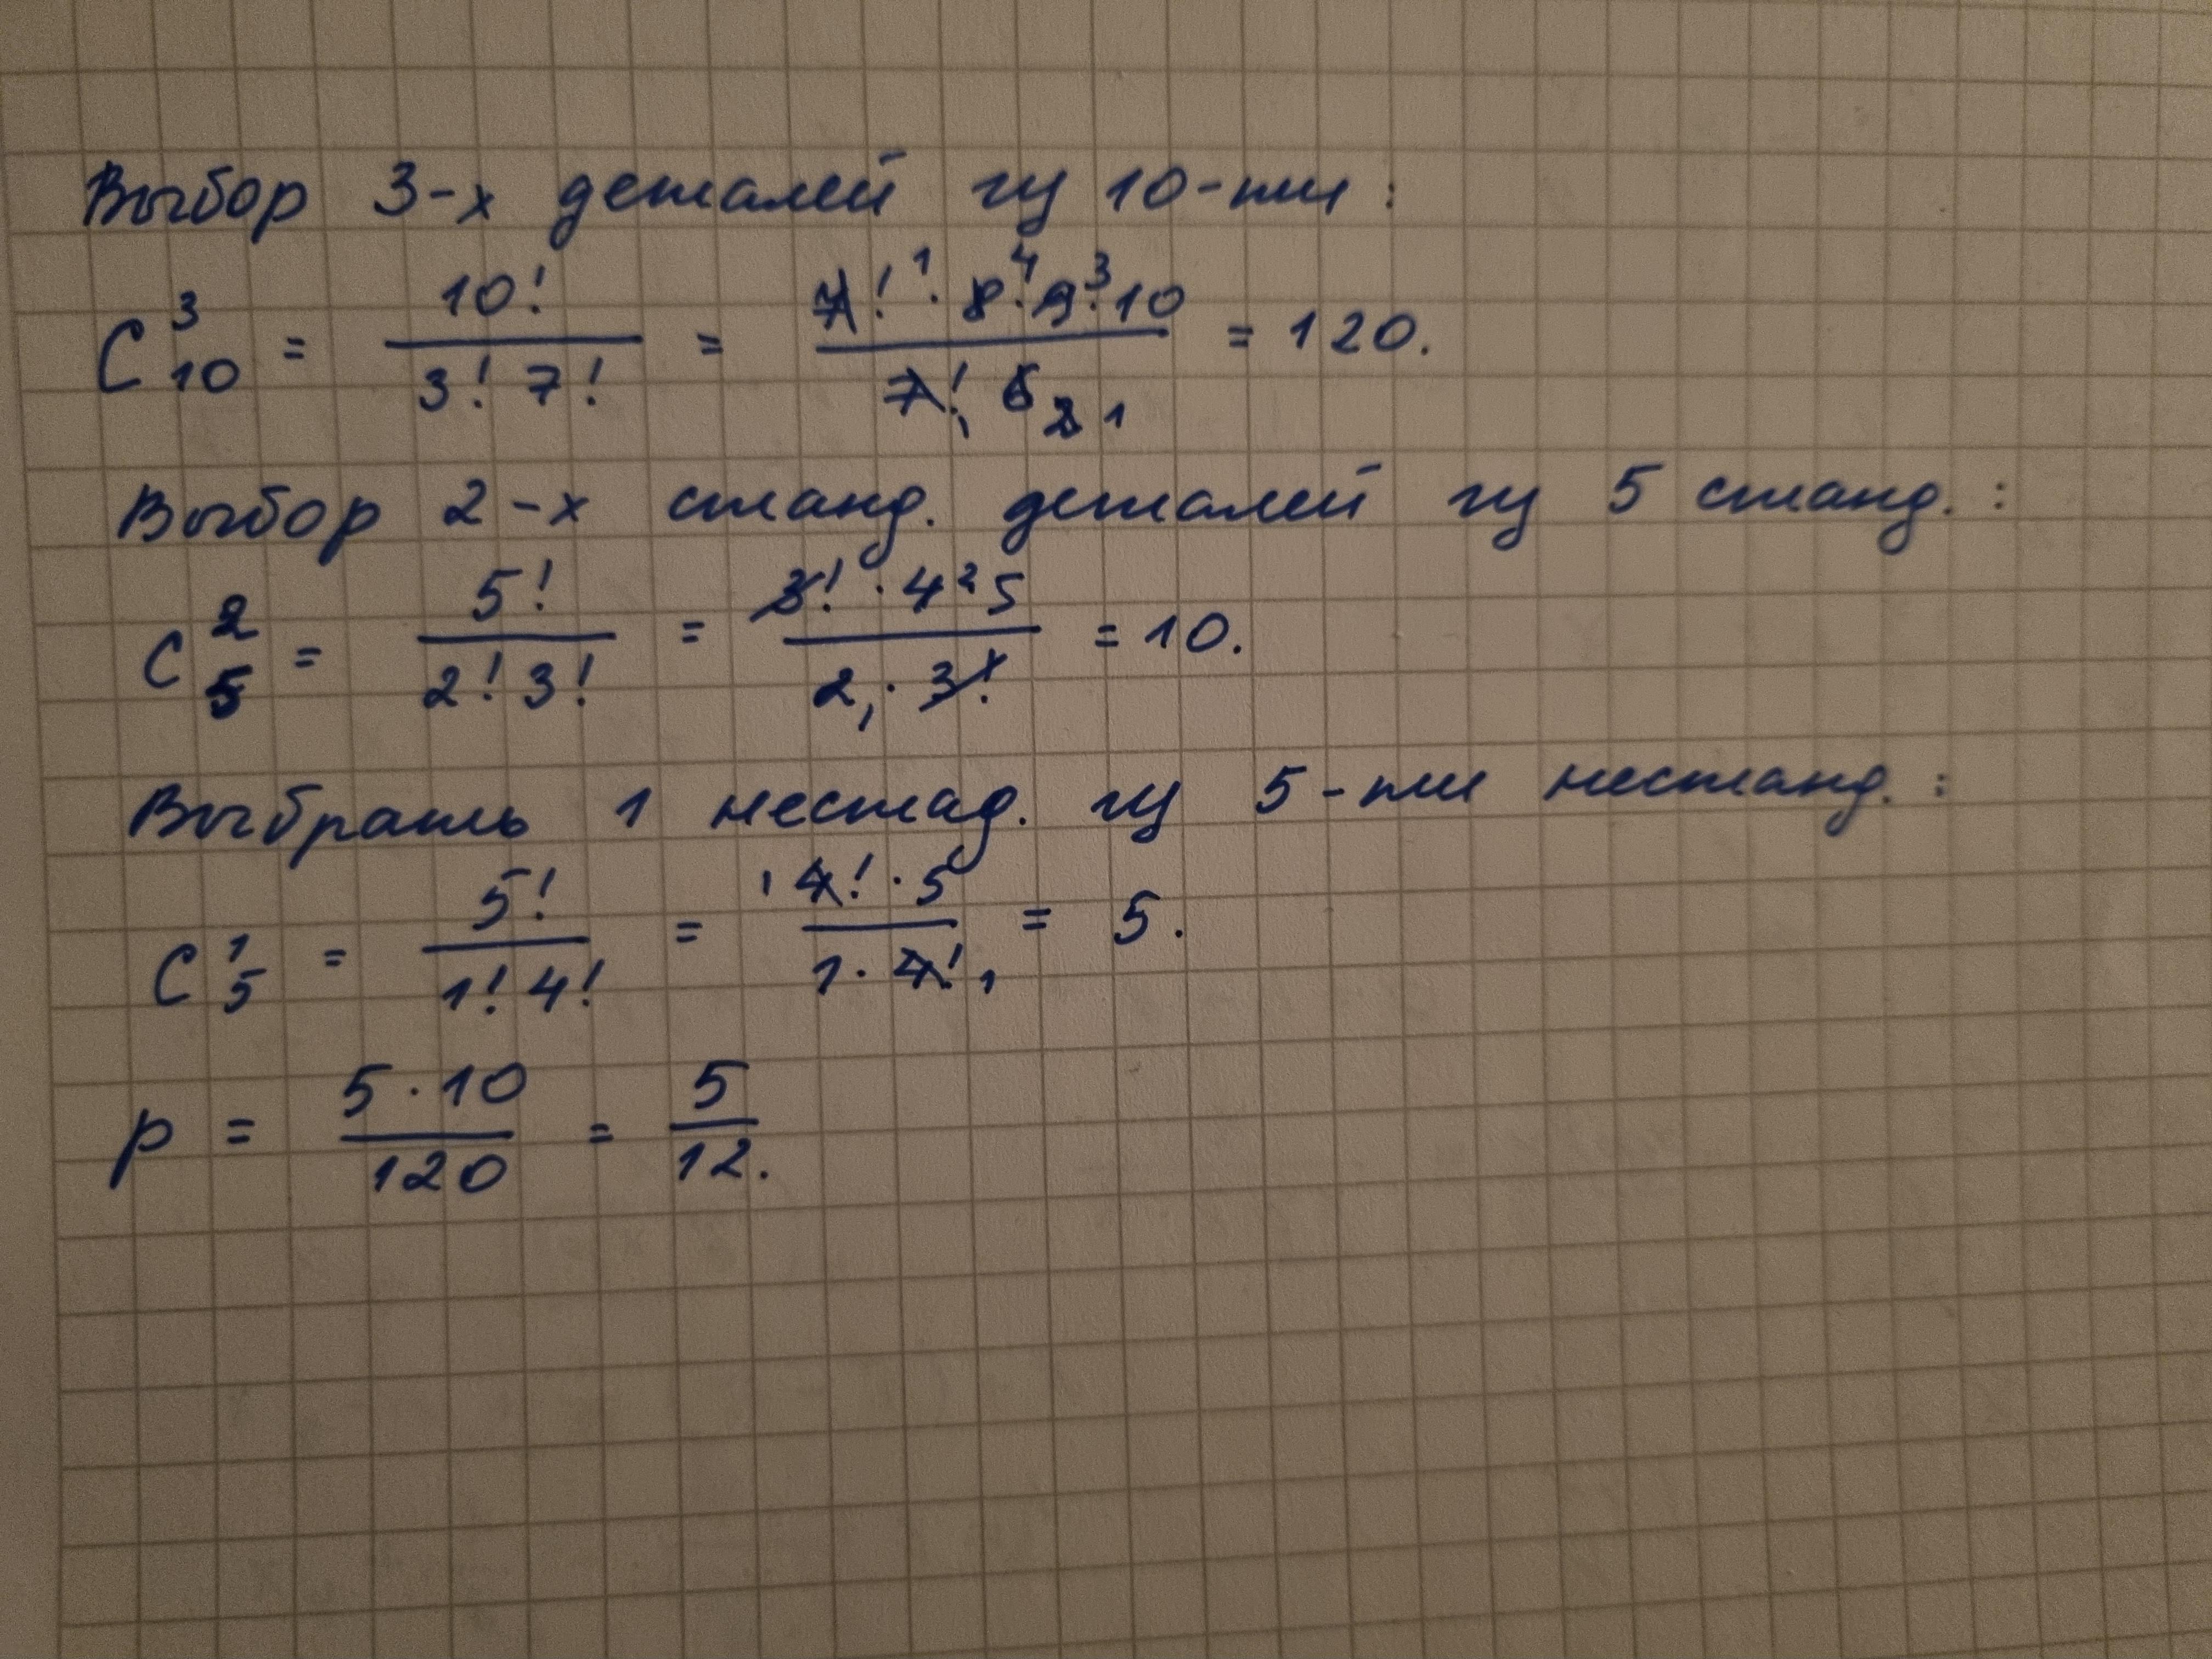 Выбор 3-х деталей из 10-ти:
C₁₀³ = 10! / 3! 7! = 7!¹ · 8⁴ · 9³ · 10 / 7!₁ 6 ₂ ₁ = 120.
Выбор 2-х станд. деталей из 5 станд.:
C₅² = 5! / 2! 3! = 3! · 4² 5 / 2₁ · 3! = 10.
Выбрать 1 нестад. из 5-ти нестанд.:
C₅¹ = 5! / 1! 4! = ¹4! · 5 / 1 · 4!₁ = 5.
p = 5 · 10 / 120 = 5 / 12.